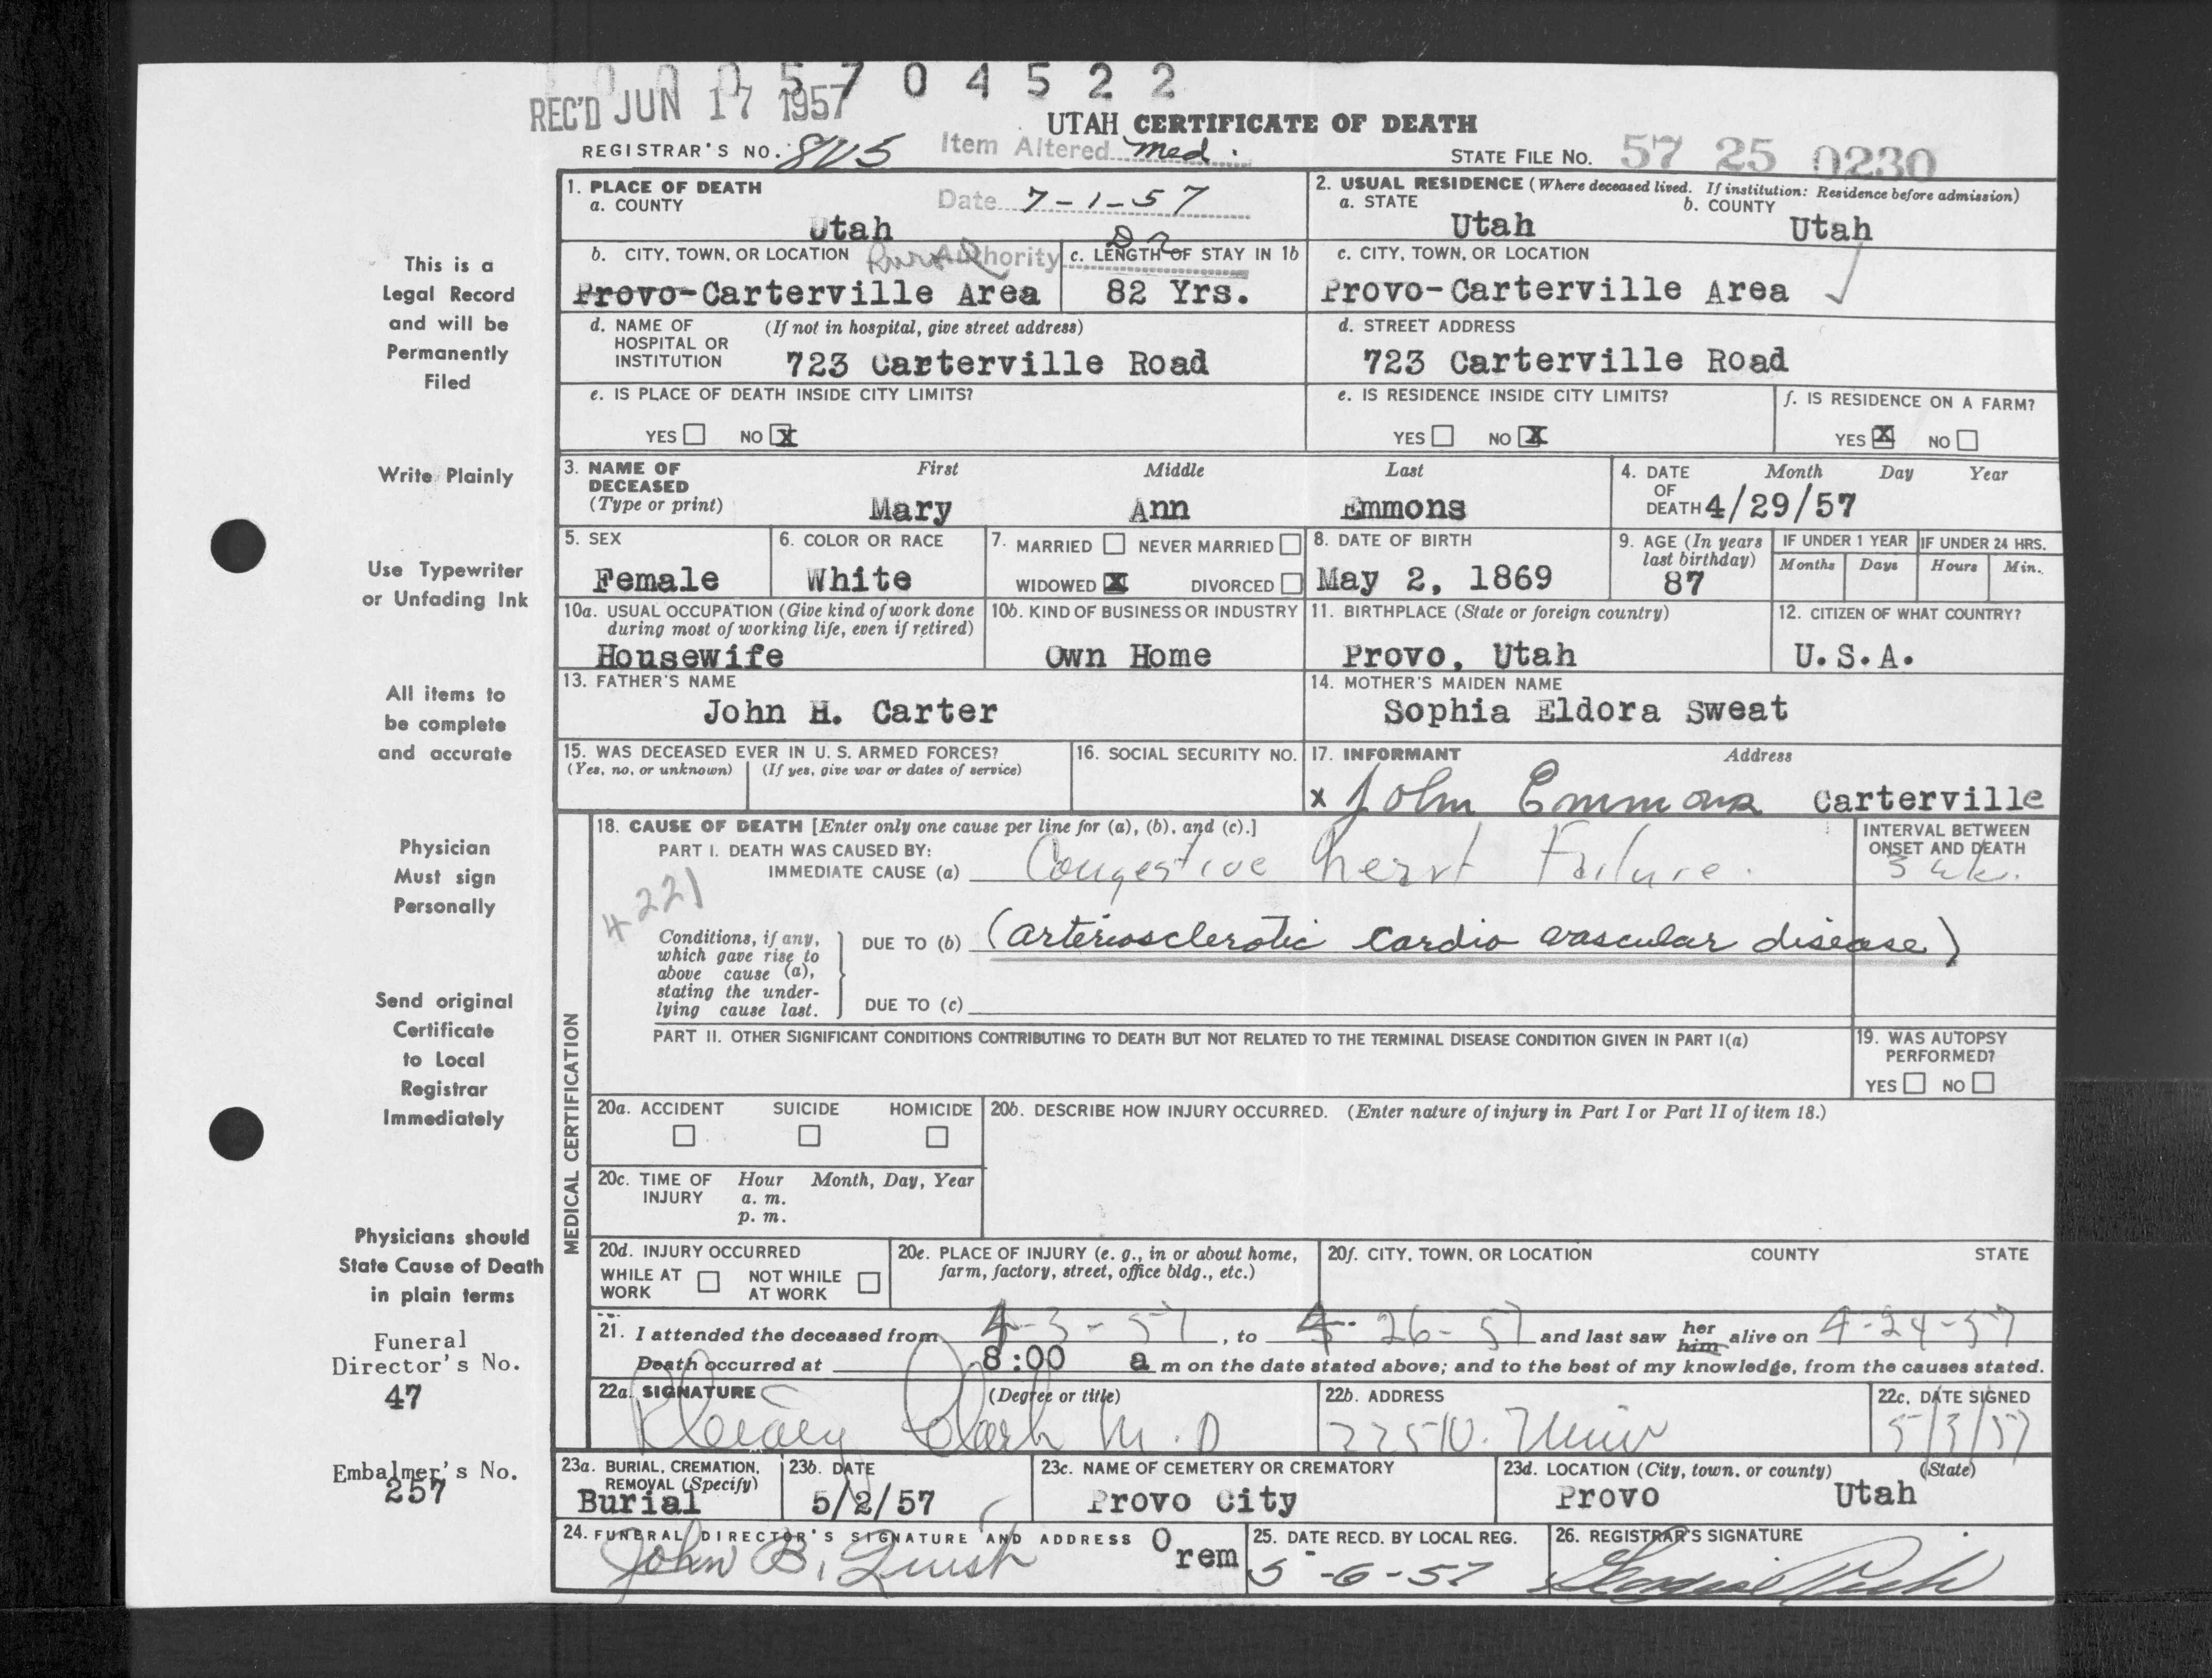 0 0 0 5 7 0 4 5 2 2
REC'D JUN 17 1957
UTAH CERTIFICATE OF DEATH
REGISTRAR'S NO.
Item Altered Med.
STATE FILE NO. 57 25 0230
1. PLACE OF DEATH
a. COUNTY
Utah
Date 7-1-57
2. USUAL RESIDENCE (Where deceased lived. If institution: Residence before admission)
a. STATE
Utah
b. COUNTY
Utah
b. CITY, TOWN, OR LOCATION
Rural
Authority Dr
Provo-Carterville Area
c. LENGTH OF STAY IN 1b
82 Yrs.
c. CITY, TOWN, OR LOCATION
Provo-Carterville Area
d. NAME OF HOSPITAL OR INSTITUTION
(If not in hospital, give street address)
723 Carterville Road
d. STREET ADDRESS
723 Carterville Road
e. IS PLACE OF DEATH INSIDE CITY LIMITS?
YES NO X
e. IS RESIDENCE INSIDE CITY LIMITS?
YES NO X
f. IS RESIDENCE ON A FARM?
YES X NO
3. NAME OF DECEASED
(Type or print)
First Middle Last
Mary Ann Emmons
4. DATE OF DEATH
Month Day Year
4/29/57
5. SEX
Female
6. COLOR OR RACE
White
7. MARRIED NEVER MARRIED
WIDOWED X DIVORCED
8. DATE OF BIRTH
May 2, 1869
9. AGE (In years last birthday)
87
IF UNDER 1 YEAR
Months Days
IF UNDER 24 HRS.
Hours Min.
10a. USUAL OCCUPATION (Give kind of work done during most of working life, even if retired)
Housewife
10b. KIND OF BUSINESS OR INDUSTRY
Own Home
11. BIRTHPLACE (State or foreign country)
Provo, Utah
12. CITIZEN OF WHAT COUNTRY?
U.S.A.
13. FATHER'S NAME
John H. Carter
14. MOTHER'S MAIDEN NAME
Sophia Eldora Sweat
15. WAS DECEASED EVER IN U. S. ARMED FORCES?
(Yes, no, or unknown) (If yes, give war or dates of service)
16. SOCIAL SECURITY NO.
17. INFORMANT Address
x John Emmons Carterville
MEDICAL CERTIFICATION
18. CAUSE OF DEATH [Enter only one cause per line for (a), (b), and (c).]
PART I. DEATH WAS CAUSED BY:
IMMEDIATE CAUSE (a) Congestive heart Failure.
INTERVAL BETWEEN ONSET AND DEATH
3 wk.
4221
Conditions, if any, which gave rise to above cause (a), stating the underlying cause last.
DUE TO (b) (arteriosclerotic cardio vascular disease)
DUE TO (c)
PART II. OTHER SIGNIFICANT CONDITIONS CONTRIBUTING TO DEATH BUT NOT RELATED TO THE TERMINAL DISEASE CONDITION GIVEN IN PART I(a)
19. WAS AUTOPSY PERFORMED?
YES NO
20a. ACCIDENT SUICIDE HOMICIDE
20b. DESCRIBE HOW INJURY OCCURRED. (Enter nature of injury in Part I or Part II of item 18.)
20c. TIME OF INJURY
Hour Month, Day, Year
a. m.
p. m.
20d. INJURY OCCURRED
WHILE AT WORK NOT WHILE AT WORK
20e. PLACE OF INJURY (e. g., in or about home, farm, factory, street, office bldg., etc.)
20f. CITY, TOWN, OR LOCATION COUNTY STATE
21. I attended the deceased from 4-3-57, to 4-26-57 and last saw her him alive on 4-24-57
Death occurred at 8:00 a m on the date stated above; and to the best of my knowledge, from the causes stated.
22a. SIGNATURE (Degree or title)
Clark M.D
22b. ADDRESS
225 N. Univ
22c. DATE SIGNED
5/3/57
23a. BURIAL, CREMATION, REMOVAL (Specify)
Burial
23b. DATE
5/2/57
23c. NAME OF CEMETERY OR CREMATORY
Provo City
23d. LOCATION (City, town, or county) (State)
Provo Utah
24. FUNERAL DIRECTOR'S SIGNATURE AND ADDRESS
John B. Orem
25. DATE RECD. BY LOCAL REG.
5-6-57
26. REGISTRAR'S SIGNATURE
This is a
Legal Record
and will be
Permanently
Filed
Write Plainly
Use Typewriter
or Unfading Ink
All items to
be complete
and accurate
Physician
Must sign
Personally
Send original
Certificate
to Local
Registrar
Immediately
Physicians should
State Cause of Death
in plain terms
Funeral
Director's No.
47
Embalmer's No.
257